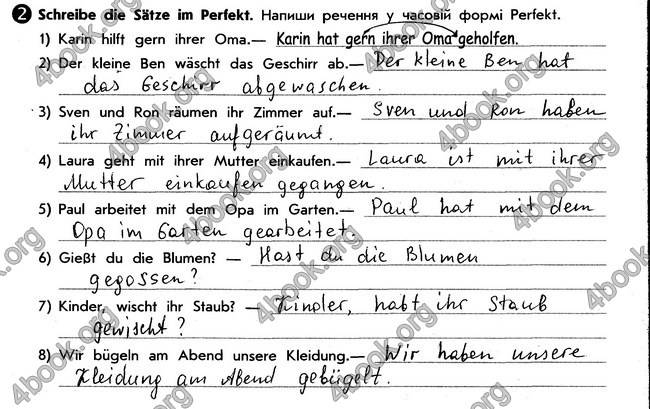 2 Schreibe die Sätze im Perfekt. Напиши речення у часовій формі Perfekt.
1) Karin hilft gern ihrer Oma.— Karin hat gern ihrer Oma geholfen.
2) Der kleine Ben wäscht das Geschirr ab.— Der kleine Ben hat
das Geschirr abgewaschen.
3) Sven und Ron räumen ihr Zimmer auf.— Sven und Ron haben
ihr Zimmer aufgeräumt.
4) Laura geht mit ihrer Mutter einkaufen.— Laura ist mit ihrer
Mutter einkaufen gegangen.
5) Paul arbeitet mit dem Opa im Garten.— Paul hat mit dem
Opa im Garten gearbeitet.
6) Gießt du die Blumen? — Hast du die Blumen
gegossen?
7) Kinder, wischt ihr Staub? — Kinder, habt ihr Staub
gewischt?
8) Wir bügeln am Abend unsere Kleidung.— Wir haben unsere
Kleidung am Abend gebügelt.
4book.org
4book.org
4book.org
4book.org
4book.org
4book.org
4book.org
4book.org
4book.org
4book.org